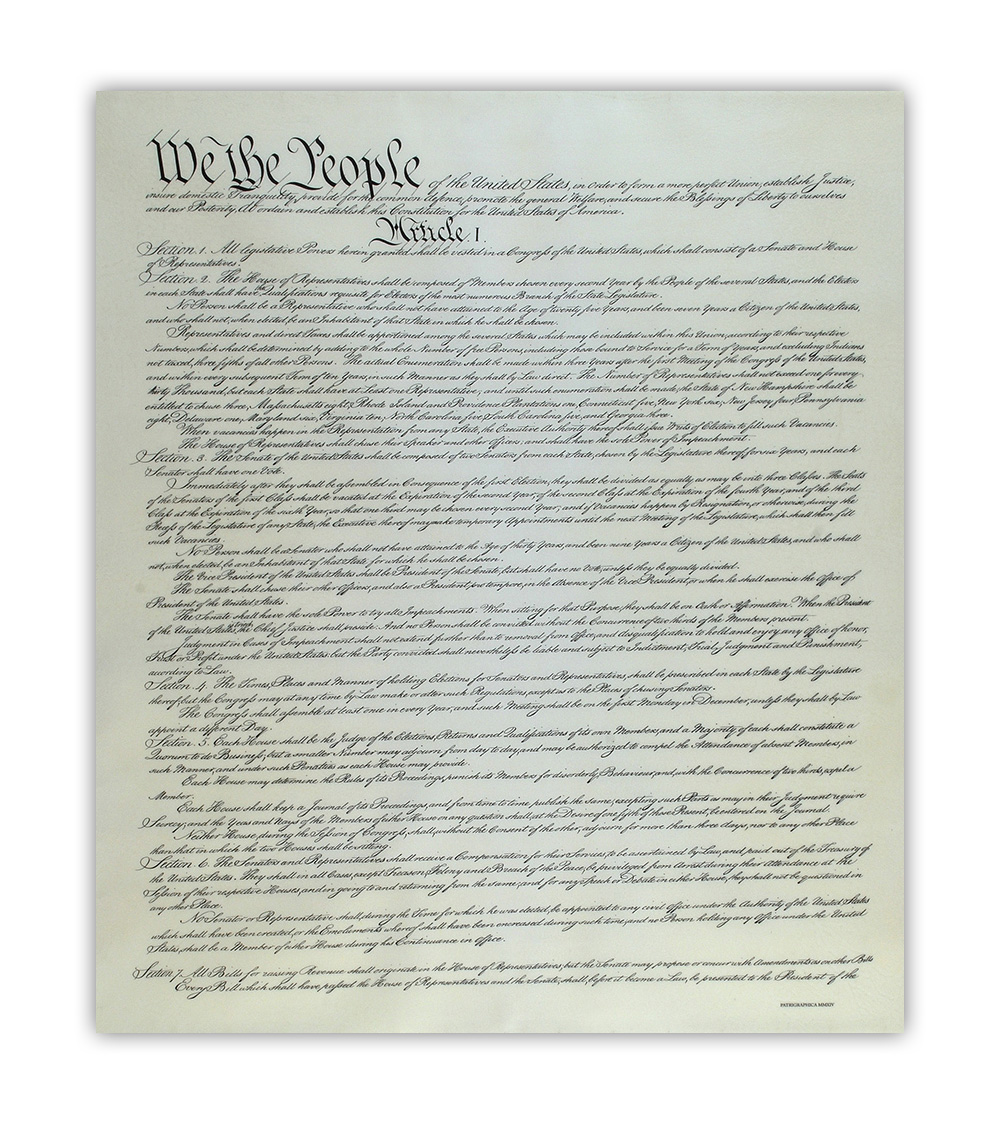 We the People of the United States, in order to form a more perfect Union, establish Justice,
insure domestic Tranquility, provide for the common defence, promote the general Welfare, and secure the Blessings of Liberty to ourselves
and our Posterity, do ordain and establish this Constitution for the United States of America.
Article. I.
Section. 1. All legislative Powers herein granted shall be vested in a Congress of the United States, which shall consist of a Senate and House
of Representatives.
Section. 2. The House of Representatives shall be composed of Members chosen every second Year by the People of the several States, and the Electors
in each State shall have the Qualifications requisite for Electors of the most numerous Branch of the State Legislature.
No Person shall be a Representative who shall not have attained to the Age of twenty five Years, and been seven Years a Citizen of the United States,
and who shall not, when elected, be an Inhabitant of that State in which he shall be chosen.
Representatives and direct Taxes shall be apportioned among the several States which may be included within this Union, according to their respective
Numbers, which shall be determined by adding to the whole Number of free Persons, including those bound to Service for a Term of Years, and excluding Indians
not taxed, three fifths of all other Persons. The actual Enumeration shall be made within three Years after the first Meeting of the Congress of the United States,
and within every subsequent Term of ten Years, in such Manner as they shall by Law direct. The Number of Representatives shall not exceed one for every
thirty Thousand, but each State shall have at Least one Representative; and until such enumeration shall be made, the State of New Hampshire shall be
entitled to chuse three, Massachusetts eight, Rhode Island and Providence Plantations one, Connecticut five, New York six, New Jersey four, Pennsylvania
eight, Delaware one, Maryland six, Virginia ten, North Carolina five, South Carolina five, and Georgia three.
When vacancies happen in the Representation from any State, the Executive Authority thereof shall issue Writs of Election to fill such Vacancies.
The House of Representatives shall chuse their Speaker and other Officers; and shall have the sole Power of Impeachment.
Section. 3. The Senate of the United States shall be composed of two Senators from each State, chosen by the Legislature thereof, for six Years; and each
Senator shall have one Vote.
Immediately after they shall be assembled in Consequence of the first Election, they shall be divided as equally as may be into three Classes. The Seats
of the Senators of the first Class shall be vacated at the Expiration of the second Year, of the second Class at the Expiration of the fourth Year, and of the third
Class at the Expiration of the sixth Year, so that one third may be chosen every second Year; and if Vacancies happen by Resignation, or otherwise, during the
Recess of the Legislature of any State, the Executive thereof may make temporary Appointments until the next Meeting of the Legislature, which shall then fill
such Vacancies.
No Person shall be a Senator who shall not have attained to the Age of thirty Years, and been nine Years a Citizen of the United States, and who shall
not, when elected, be an Inhabitant of that State for which he shall be chosen.
The Vice President of the United States shall be President of the Senate, but shall have no Vote, unless they be equally divided.
The Senate shall chuse their other Officers, and also a President pro tempore, in the Absence of the Vice President, or when he shall exercise the Office of
President of the United States.
The Senate shall have the sole Power to try all Impeachments. When sitting for that Purpose, they shall be on Oath or Affirmation. When the President
of the United States is tried, the Chief Justice shall preside: And no Person shall be convicted without the Concurrence of two thirds of the Members present.
Judgment in Cases of Impeachment shall not extend further than to removal from Office, and disqualification to hold and enjoy any Office of honor,
Trust or Profit under the United States: but the Party convicted shall nevertheless be liable and subject to Indictment, Trial, Judgment and Punishment,
according to Law.
Section. 4. The Times, Places and Manner of holding Elections for Senators and Representatives, shall be prescribed in each State by the Legislature
thereof; but the Congress may at any time by Law make or alter such Regulations, except as to the Places of chusing Senators.
The Congress shall assemble at least once in every Year, and such Meeting shall be on the first Monday in December, unless they shall by Law
appoint a different Day.
Section. 5. Each House shall be the Judge of the Elections, Returns and Qualifications of its own Members, and a Majority of each shall constitute a
Quorum to do Business; but a smaller Number may adjourn from day to day, and may be authorized to compel the Attendance of absent Members, in
such Manner, and under such Penalties as each House may provide.
Each House may determine the Rules of its Proceedings, punish its Members for disorderly Behaviour, and, with the Concurrence of two thirds, expel a
Member.
Each House shall keep a Journal of its Proceedings, and from time to time publish the same, excepting such Parts as may in their Judgment require
Secrecy; and the Yeas and Nays of the Members of either House on any question shall, at the Desire of one fifth of those Present, be entered on the Journal.
Neither House, during the Session of Congress, shall, without the Consent of the other, adjourn for more than three days, nor to any other Place
than that in which the two Houses shall be sitting.
Section. 6. The Senators and Representatives shall receive a Compensation for their Services, to be ascertained by Law, and paid out of the Treasury of
the United States. They shall in all Cases, except Treason, Felony and Breach of the Peace, be privileged from Arrest during their Attendance at the
Session of their respective Houses, and in going to and returning from the same; and for any Speech or Debate in either House, they shall not be questioned in
any other Place.
No Senator or Representative shall, during the Time for which he was elected, be appointed to any civil Office under the Authority of the United States
which shall have been created, or the Emoluments whereof shall have been encreased during such time; and no Person holding any Office under the United
States, shall be a Member of either House during his Continuance in Office.
Section 7. All Bills for raising Revenue shall originate in the House of Representatives; but the Senate may propose or concur with Amendments as on other Bills
Every Bill which shall have passed the House of Representatives and the Senate, shall, before it become a Law, be presented to the President of the
PATRIGRAPHICA MMXIV